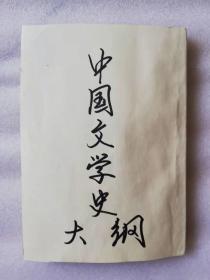 中国文学史
大纲